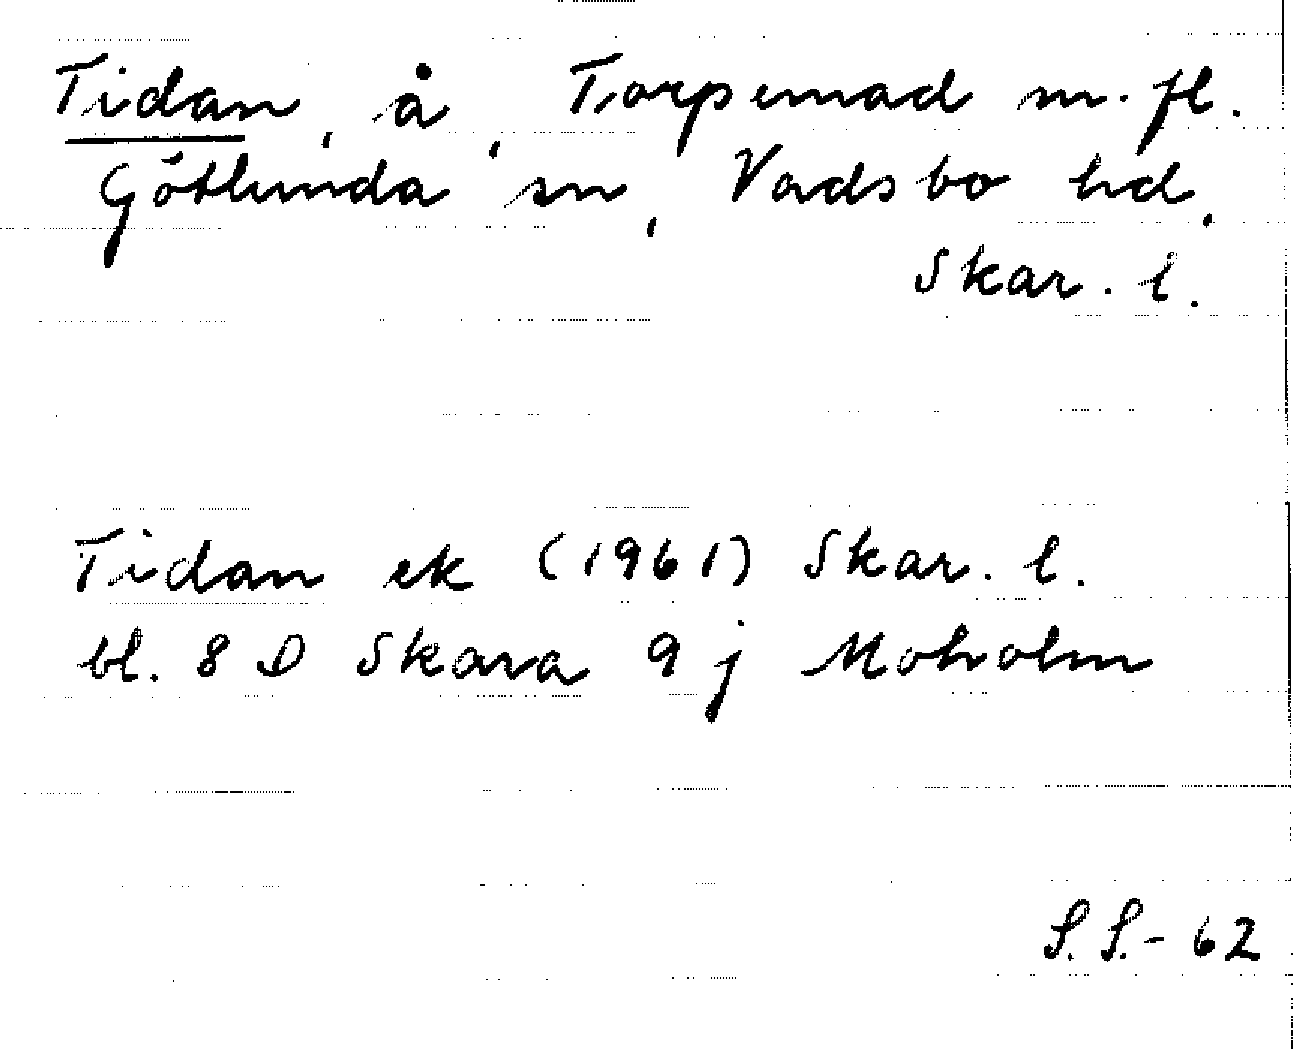 Tidan, å, Torpemad m. fl.
Götlunda sn, Vadsbo hd,
Skar. l.
Tidan ek (1961) Skar. l.
bl. 8 D Skara 9 j Moholm
S. S. - 62